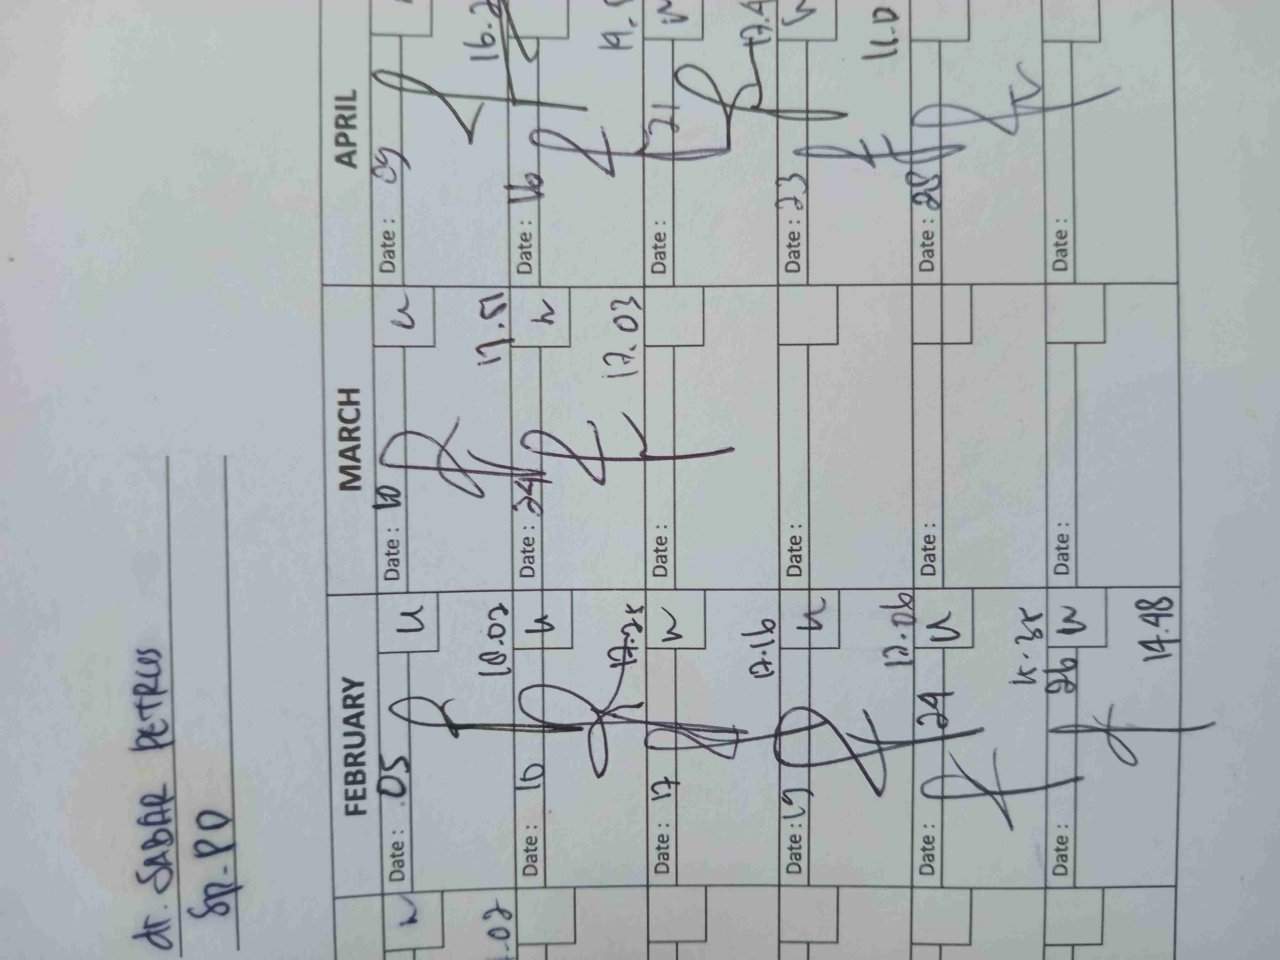 dr. SABAR PETRUS
Sp. PD
FEBRUARY
MARCH
APRIL
Date : 05
u
18.02
Date : 10
u
17.25
Date : 17
u
17.16
Date : 19
u
17.06
Date : 24
u
Date : 26
u
14.48
Date : 10
u
17.51
Date : 24
u
17.03
Date :
Date :
Date :
Date :
Date : 09
Date : 16
Date : 21
Date : 23
Date : 28
Date :